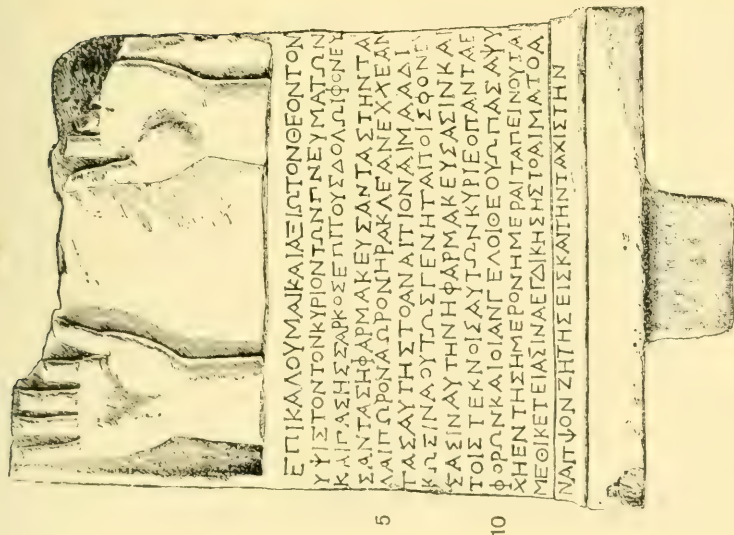 ΕΠΙΚΑΛΟΥΜΑΙΚΑΙΑΞΙΩΤΟΝΘΕΟΝΤΟΝ
ΥΨΙΣΤΟΝΤΟΝΚΥΡΙΟΝΤΩΝΠΝΕΥΜΑΤΩΝ
ΚΑΙΠΑΣΗΣΣΑΡΚΟΣΕΠΙΤΟΥΣΔΟΛΩΙΦΟΝΕΥ
ΣΑΝΤΑΣΗΦΑΡΜΑΚΕΥΣΑΝΤΑΣΤΗΝΤΑ
5 ΛΑΙΠΩΡΟΝΑΩΡΟΝΗΡΑΚΛΕΑΝΕΧΧΕΑΝ
ΤΑΣΑΥΤΗΣΤΟΑΝΑΙΤΙΟΝΑΙΜΑΑΔΙ
ΚΩΣΙΝΑΟΥΤΩΣΓΕΝΗΤΑΙΤΟΙΣΦΟΝΕΥ
ΣΑΣΙΝΑΥΤΗΝΗΦΑΡΜΑΚΕΥΣΑΣΙΝΚΑΙ
ΤΟΙΣΤΕΚΝΟΙΣΑΥΤΩΝΚΥΡΙΕΟΠΑΝΤΑΕ
10 ΦΟΡΩΝΚΑΙΟΙΑΝΓΕΛΟΙΘΕΟΥΩΠΑΣΑΨΥ
ΧΗΕΝΤΗΣΗΜΕΡΟΝΗΜΕΡΑΙΤΑΠΕΙΝΟΥΤΑ
ΜΕΘΙΚΕΤΕΙΑΣΙΝΑΕΓΔΙΚΗΣΗΣΤΟΑΙΜΑΤΟΑ
ΝΑΙΤΙΟΝΖΗΤΗΣΕΙΣΚΑΙΤΗΝΤΑΧΙΣΤΗΝ